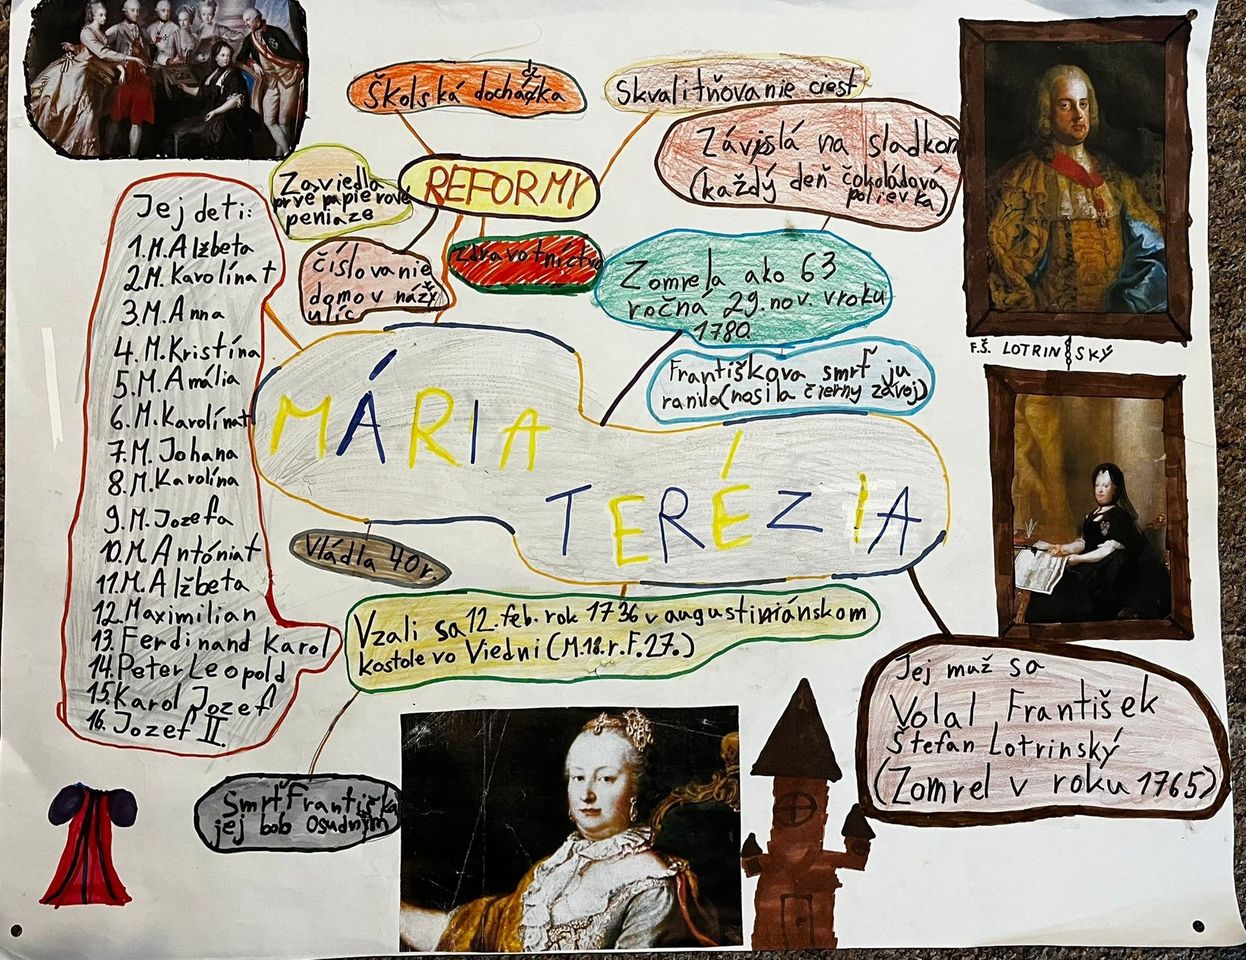 Školská dochádzka
Skvalitňovanie ciest
Závislá na sladkom
(každý deň čokoládová
polievka)
Zaviedla
prvé papierové
peniaze
REFORMY
zdravotníctvo
číslovanie
domov názvy
ulíc
Zomrela ako 63
ročná 29.nov. v roku
1780
Františkova smrť ju
ranila (nosila čierny závoj)
F.Š. LOTRINSKÝ
Jej deti:
1.M.Alžbeta
2.M.Karolína†
3.M.Anna
4.M.Kristína
5.M.Amália
6.M.Karolína†
7.M.Johana
8.M.Karolína
9.M.Jozefa
10.M.Antónia†
11.M.Alžbeta
12.Maximilian
13.Ferdinand Karol
14.Peter Leopold
15.Karol Jozef
16.Jozef II.
MÁRIA
TERÉZIA
Vládla 40 r.
Vzali sa 12.feb. rok 1736 v augustiniánskom
kostole vo Viedni (M.18.r.F.27.)
Smrť Františka
jej bob osudným
Jej muž sa
Volal František
Štefan Lotrinský
(Zomrel v roku 1765)